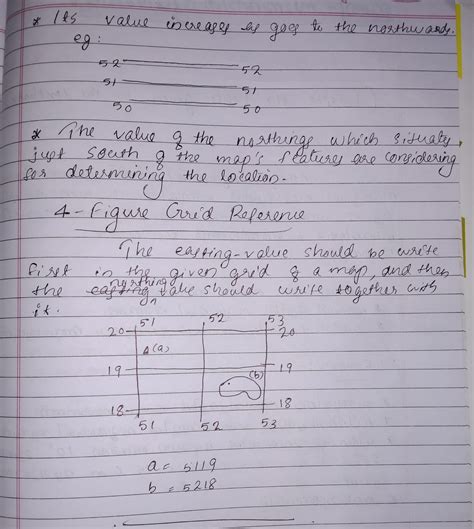 * Its value increases as goes to the northwards.
eg:
52 52
51 51
50 50
* The value of the northings which situaty
just south of the map's features are considering
for determining the location.
4-Figure Grid Reference
The easting-value should be write
first in the given grid of a map, and then
the northing value should write together with
it.
51 52 53
20 20
(a)
19 19
(b)
18 18
51 52 53
a = 5119
b = 5218